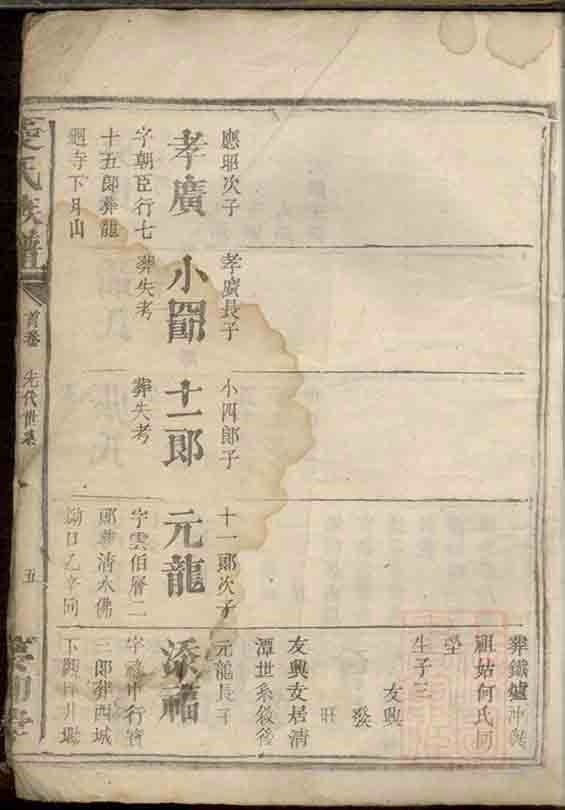 應昭次子
孝廣
字朝臣行七
十五郎葬龍
廻寺下月山
孝廣長子
小四郎
葬失考
小四郎子
十一郎
葬失考
十一郎次子
元龍
字雲伯曆二
郎葬清水佛
坳口乙辛向
葬鐵爐冲與
祖姑何氏同
塋
生子三
友興
發
旺
友興友居清
潭世系後
元龍長子
添福
字 行
二郎葬西城
下
氏族譜
首卷
先代世系
五